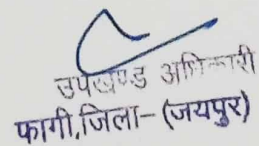 उपखण्ड अधिकारी
फागी,जिला– (जयपुर)